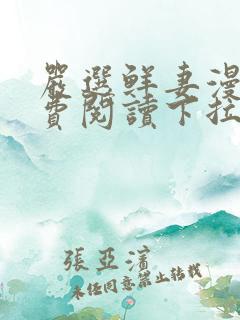 嚴選鮮妻漫
費閱讀下拉
張亞濱
未經同意禁止轉載